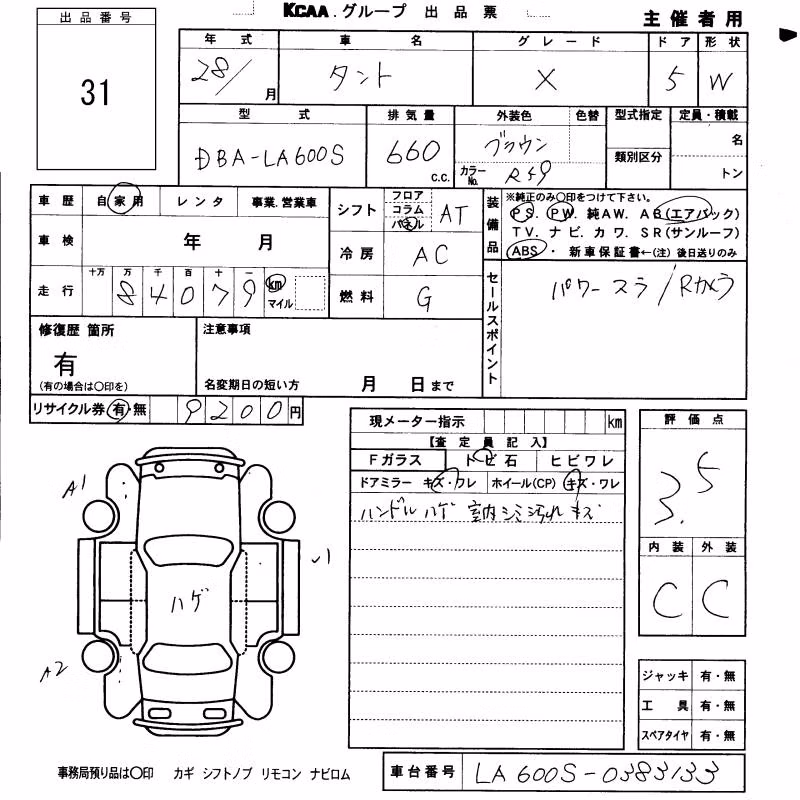 KCAA.グループ 出品票
主催者用
出品番号
31
年式 車名 グレード ドア 形状
28/ 月 タント X 5 W
型式 排気量 外装色 色替 型式指定 定員・積載
DBA-LA600S 660 c.c. ブラウン カラーNo. R59 類別区分 名 トン
車歴 自家用 レンタ 事業.営業車
シフト フロア コラム パネル AT
装備品 ※純正のみ○印をつけて下さい。
PS. PW. 純AW. AB(エアバック)
TV. ナビ. カワ. SR(サンルーフ)
ABS・ 新車保証書←(注)後日送りのみ
車検 年 月
冷房 AC
走行 十万 万 千 百 十 一
84079 km マイル
燃料 G
セールスポイント
パワースラ/Rカメラ
修復歴 箇所
有
(有の場合は○印を)
注意事項
名変期日の短い方 月 日まで
リサイクル券 有・無 9200円
現メーター指示 km
【査定員記入】
Fガラス トビ石 ヒビワレ
ドアミラー キズ・ワレ ホイール(CP) キズ・ワレ
ハンドルハゲ 室内シミ汚れ キズ
評価点
3.5
内装 外装
C C
A1
ハゲ
A2
ジャッキ 有・無
工具 有・無
スペアタイヤ 有・無
事務局預り品は○印 カギ シフトノブ リモコン ナビロム
車台番号 LA600S-0383133